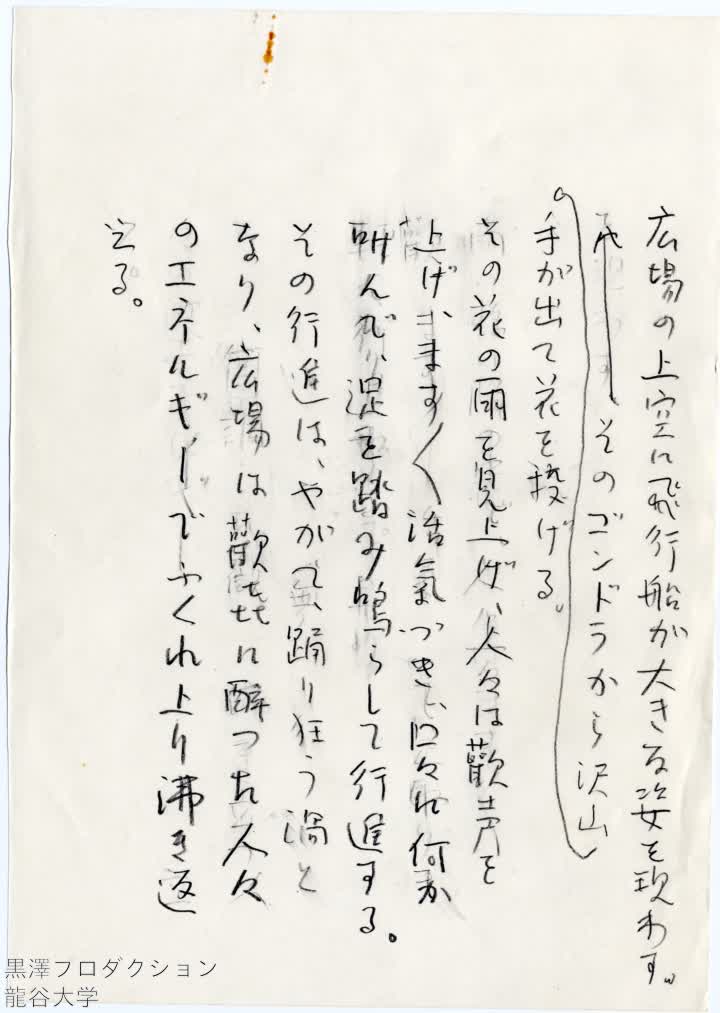 広場の上空に飛行船が大きな姿を現わす。
そのゴンドラから沢山
手が出て花を投げる。
その花の雨を見上げ、人々は歡声を
上げ、ますます活氣づき、口々に何か
叫んで、足を踏み鳴らして行進する。
その行進は、やがて、踊り狂う渦と
なり、広場は歡喜に醉つた人々
のエネルギーでふくれ上り沸き返
える。
黒澤プロダクション
龍谷大学